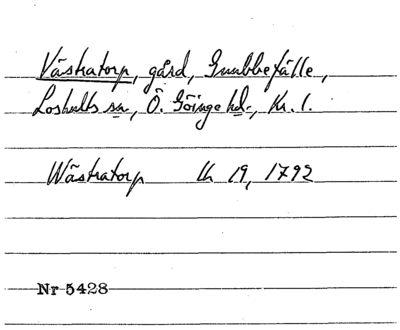 Västratorp, gård, Gnubbefälle,
Loshults sn, Ö. Göinge hd., Kr. l.
Wästratorp lk 19, 1792
Nr 5428